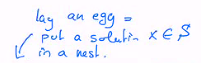 lay an egg =
put a solutin x ∈ S
in a nest.